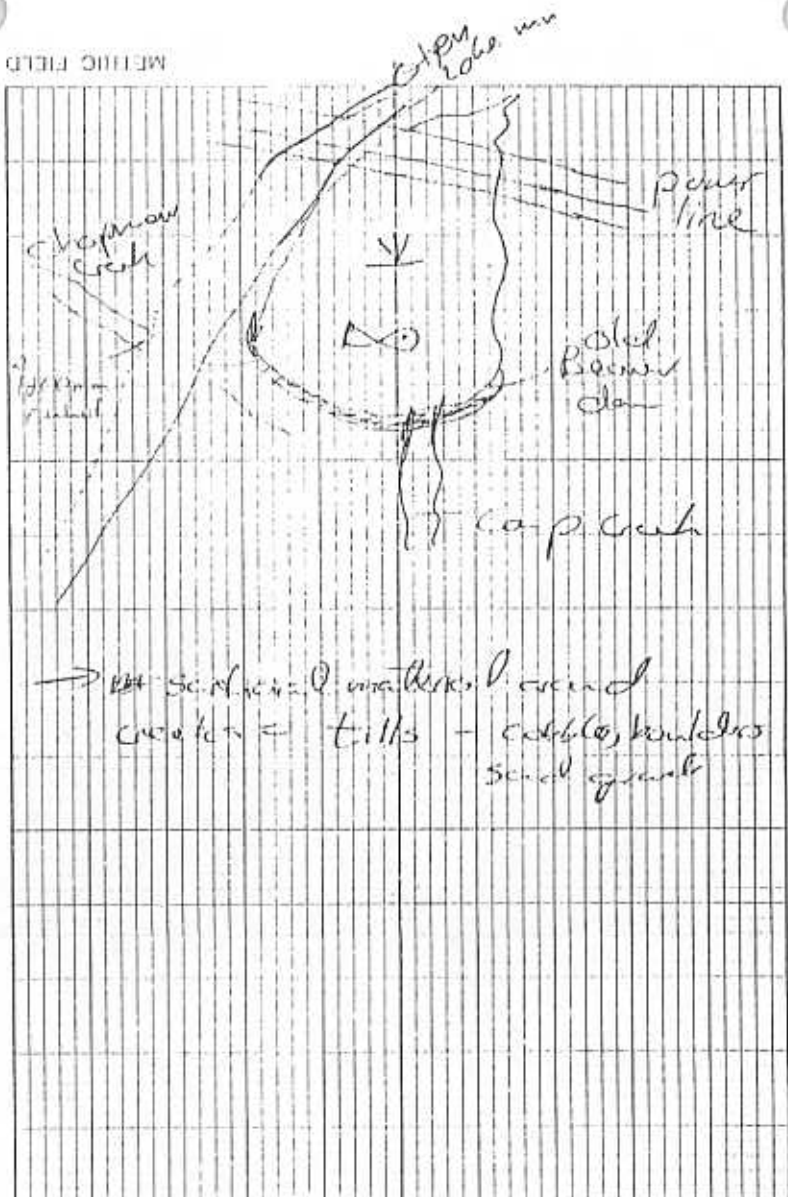 METRIC FIELD
power
line
Chapman
creek
old
Beaver
dam
Camp Creek
→ surficial material around
creeks = tills - cobbles, boulders
sand gravels